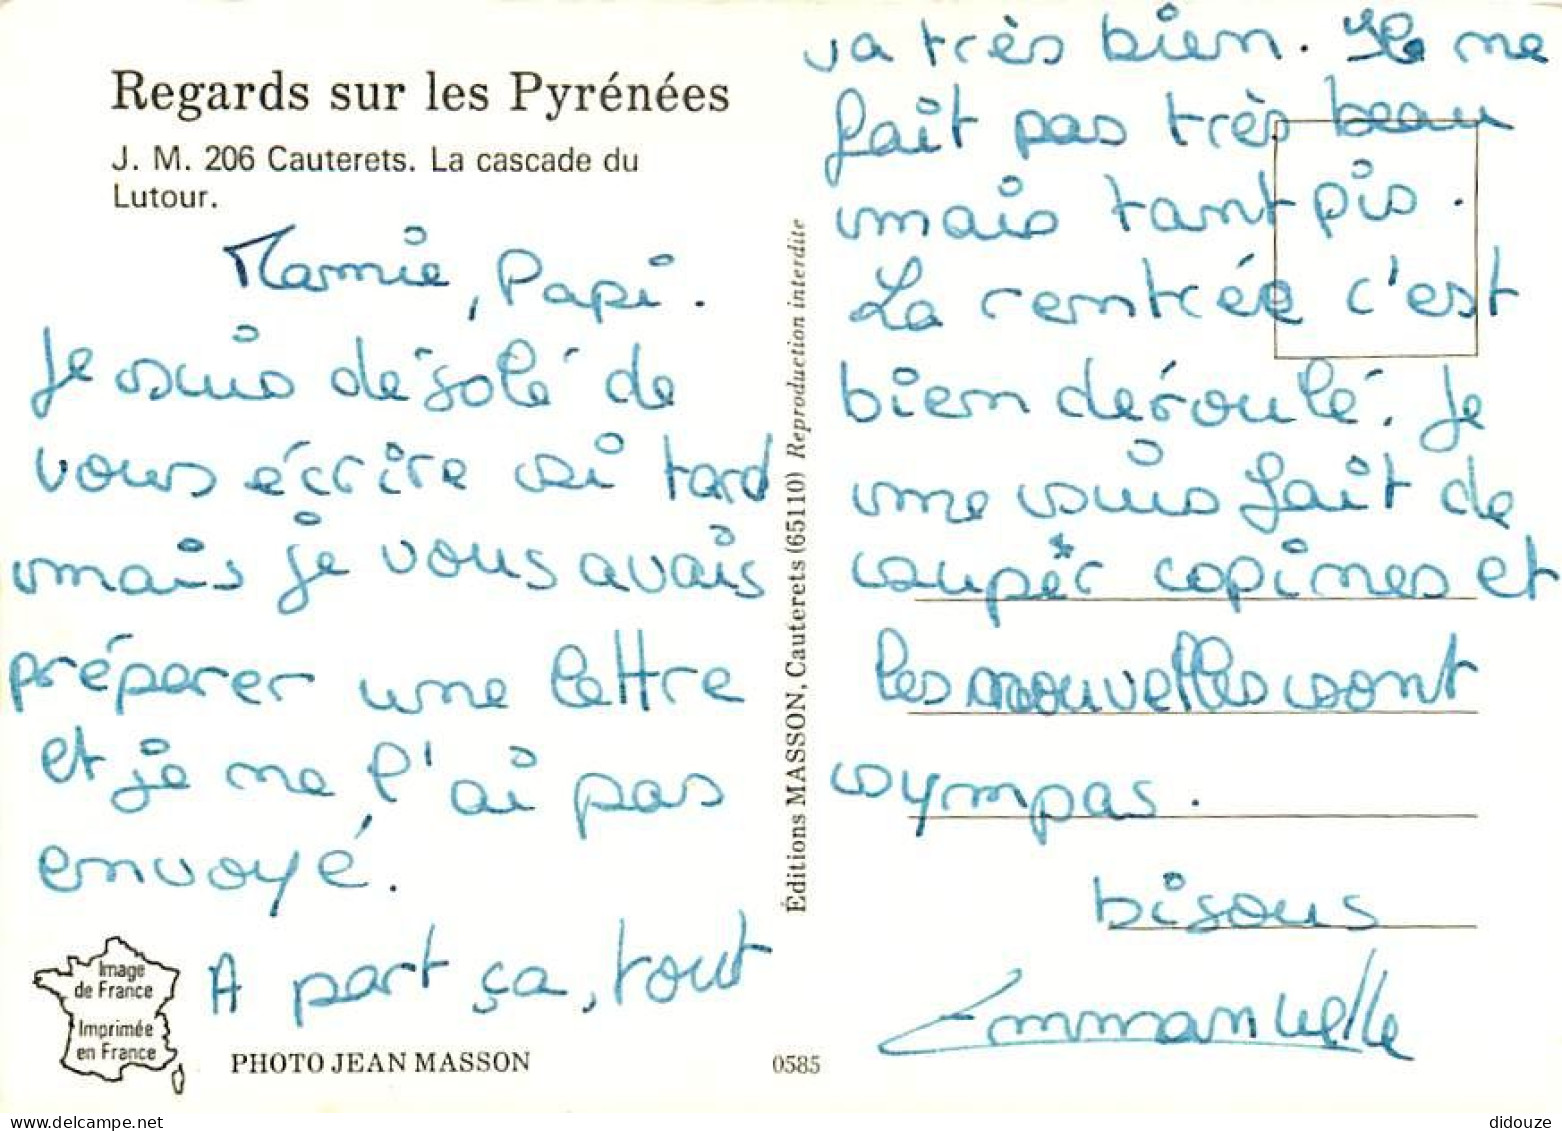 Regards sur les Pyrénées
J. M. 206 Cauterets. La cascade du
Lutour.
Mamie, Papi.
Je suis désolé de
vous écrire si tard
mais je vous avais
préparer une lettre
et je ne l'ai pas
envoyé.
A part ça, tout
Image
de France
Imprimée
en France
PHOTO JEAN MASSON
0585
Éditions MASSON, Cauterets (65110) Reproduction interdite
va très bien. Il ne
fait pas très beau
mais tant pis.
La rentrée c'est
bien déroulé. Je
me suis fait de
super copines et
les nouvelles sont
sympas.
bisous
Emmanuelle
didouze